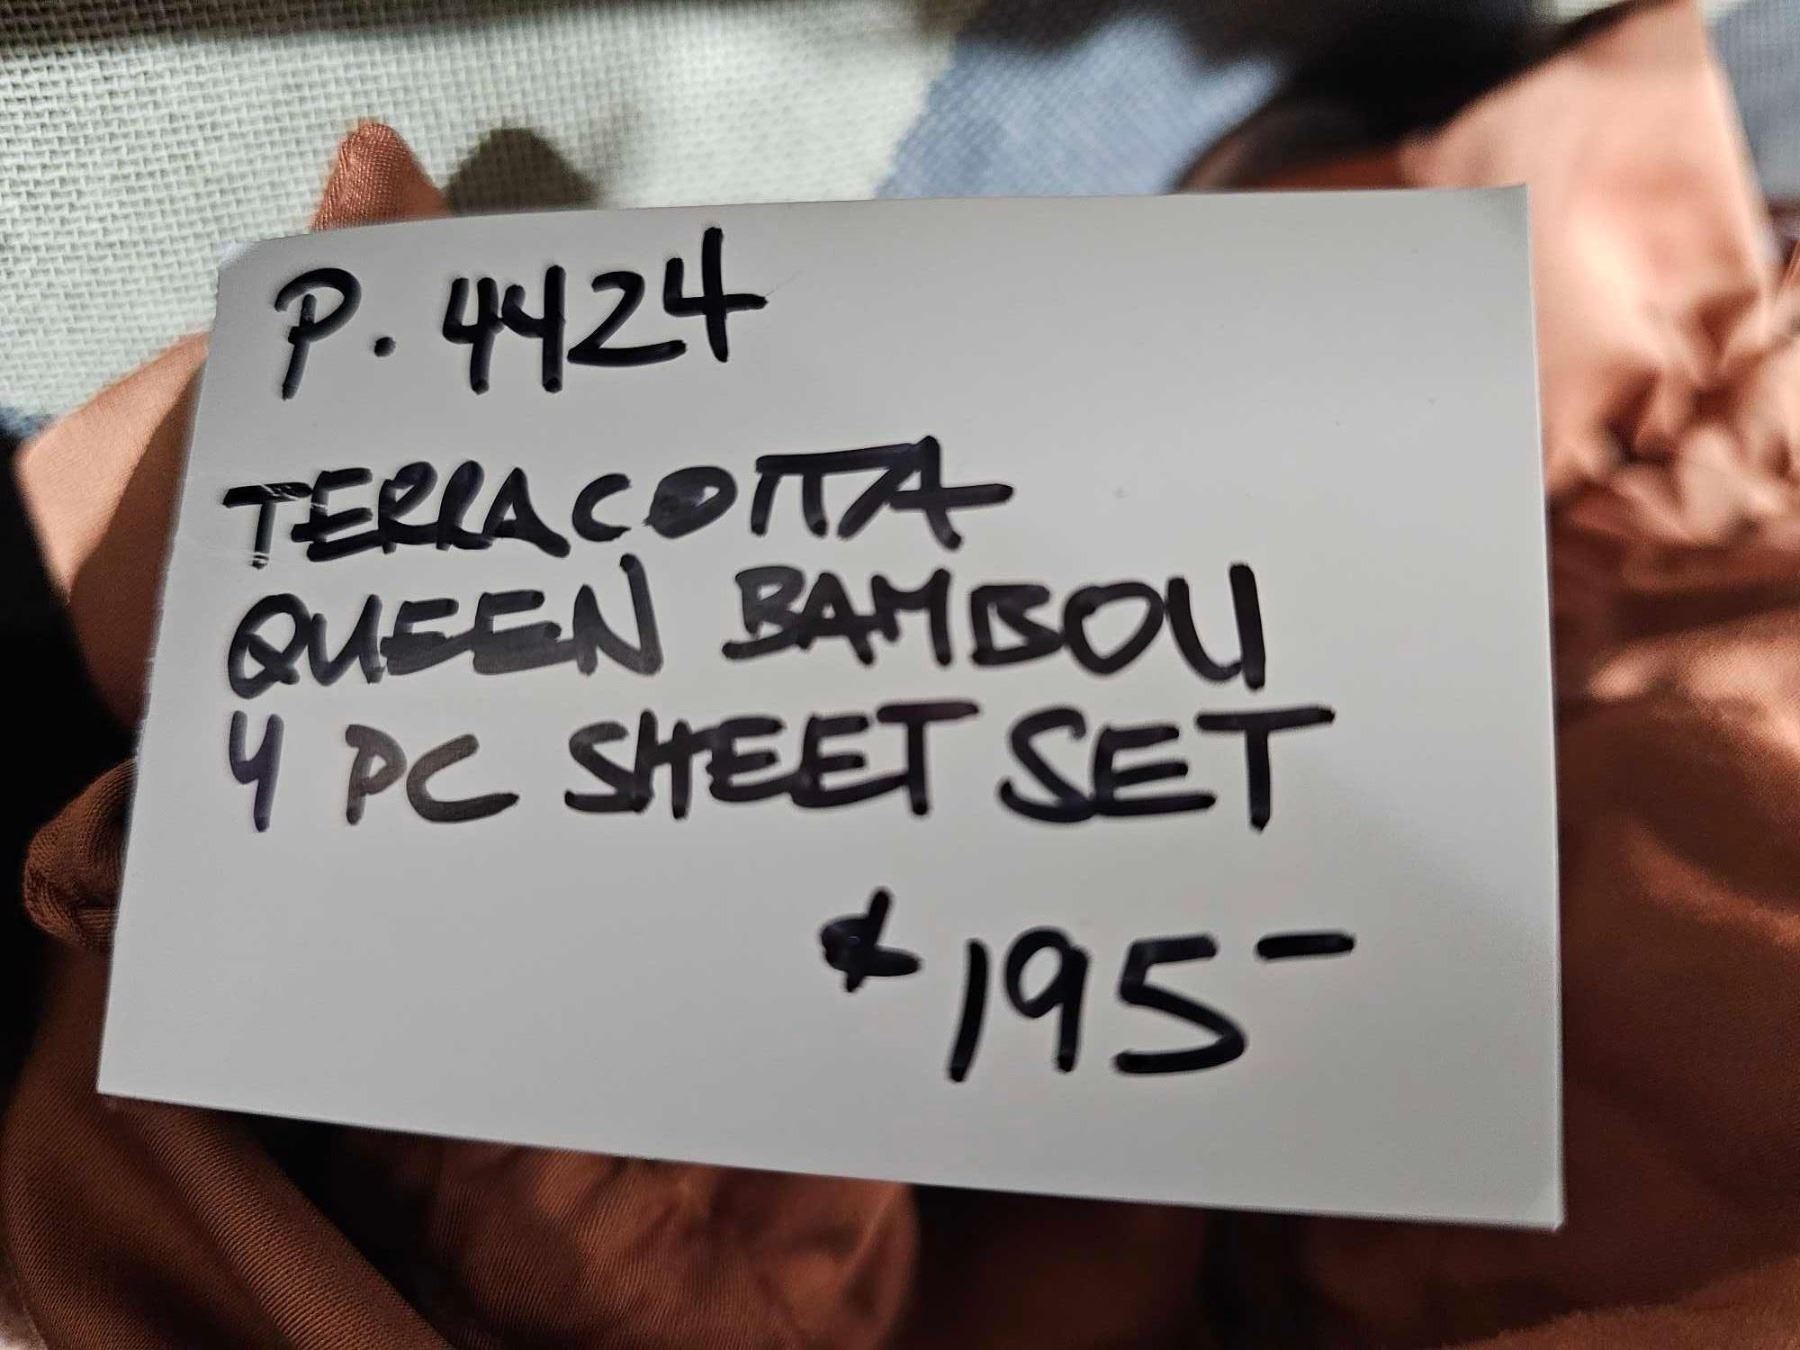 P. 4424
TERRACOTTA
QUEEN BAMBOU
4 PC SHEET SET
$195-